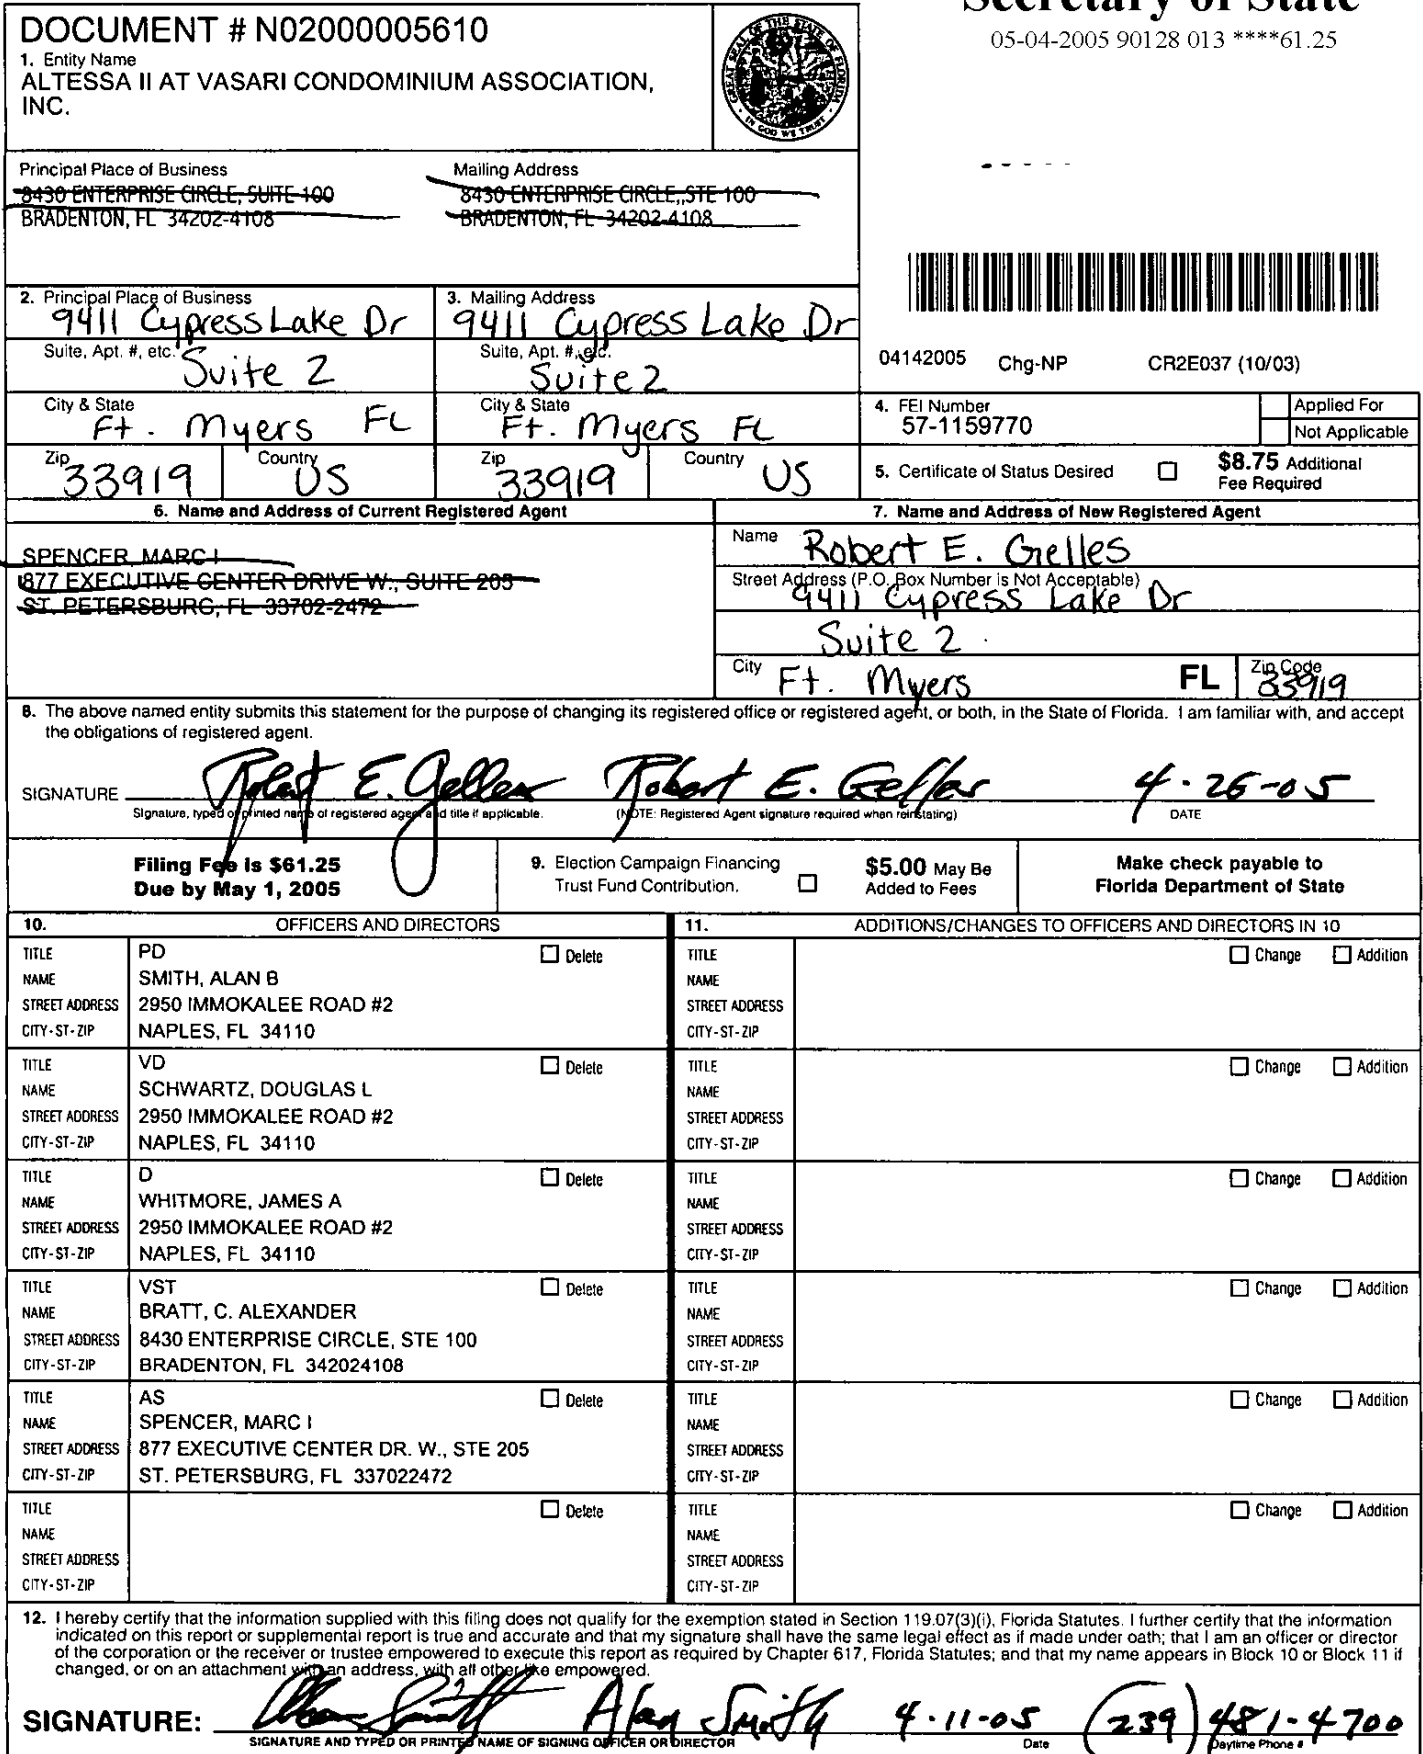 Secretary of State
05-04-2005 90128 013 ****61.25
DOCUMENT # N02000005610
1. Entity Name
ALTESSA II AT VASARI CONDOMINIUM ASSOCIATION,
INC.
GREAT SEAL OF THE STATE OF FLORIDA
IN GOD WE TRUST
Principal Place of Business
8430 ENTERPRISE CIRCLE, SUITE 100
BRADENTON, FL 34202-4108
Mailing Address
8430 ENTERPRISE CIRCLE,,STE 100
BRADENTON, FL 34202-4108
2. Principal Place of Business
9411 Cypress Lake Dr
Suite, Apt. #, etc.
Suite 2
City & State
Ft. Myers FL
Zip
33919
Country
US
3. Mailing Address
9411 Cypress Lake Dr
Suite, Apt. #, etc.
Suite 2
City & State
Ft. Myers FL
Zip
33919
Country
US
04142005 Chg-NP CR2E037 (10/03)
4. FEI Number
57-1159770
Applied For
Not Applicable
5. Certificate of Status Desired
$8.75 Additional
Fee Required
6. Name and Address of Current Registered Agent
SPENCER, MARC I
877 EXECUTIVE CENTER DRIVE W., SUITE 205
ST. PETERSBURG, FL 33702-2472
7. Name and Address of New Registered Agent
Name
Robert E. Gelles
Street Address (P.O. Box Number is Not Acceptable)
9411 Cypress Lake Dr
Suite 2
City
Ft. Myers
FL
Zip Code
33919
8. The above named entity submits this statement for the purpose of changing its registered office or registered agent, or both, in the State of Florida. I am familiar with, and accept
the obligations of registered agent.
SIGNATURE Robert E. Gelles Robert E. Gelles 4-26-05
Signature, typed or printed name of registered agent and title if applicable. (NOTE: Registered Agent signature required when reinstating) DATE
Filing Fee is $61.25
Due by May 1, 2005
9. Election Campaign Financing
Trust Fund Contribution.
$5.00 May Be
Added to Fees
Make check payable to
Florida Department of State
10. OFFICERS AND DIRECTORS
11. ADDITIONS/CHANGES TO OFFICERS AND DIRECTORS IN 10
TITLE PD Delete
NAME SMITH, ALAN B
STREET ADDRESS 2950 IMMOKALEE ROAD #2
CITY-ST-ZIP NAPLES, FL 34110
TITLE Change Addition
NAME
STREET ADDRESS
CITY-ST-ZIP
TITLE VD Delete
NAME SCHWARTZ, DOUGLAS L
STREET ADDRESS 2950 IMMOKALEE ROAD #2
CITY-ST-ZIP NAPLES, FL 34110
TITLE Change Addition
NAME
STREET ADDRESS
CITY-ST-ZIP
TITLE D Delete
NAME WHITMORE, JAMES A
STREET ADDRESS 2950 IMMOKALEE ROAD #2
CITY-ST-ZIP NAPLES, FL 34110
TITLE Change Addition
NAME
STREET ADDRESS
CITY-ST-ZIP
TITLE VST Delete
NAME BRATT, C. ALEXANDER
STREET ADDRESS 8430 ENTERPRISE CIRCLE, STE 100
CITY-ST-ZIP BRADENTON, FL 342024108
TITLE Change Addition
NAME
STREET ADDRESS
CITY-ST-ZIP
TITLE AS Delete
NAME SPENCER, MARC I
STREET ADDRESS 877 EXECUTIVE CENTER DR. W., STE 205
CITY-ST-ZIP ST. PETERSBURG, FL 337022472
TITLE Change Addition
NAME
STREET ADDRESS
CITY-ST-ZIP
TITLE Delete
NAME
STREET ADDRESS
CITY-ST-ZIP
TITLE Change Addition
NAME
STREET ADDRESS
CITY-ST-ZIP
12. I hereby certify that the information supplied with this filing does not qualify for the exemption stated in Section 119.07(3)(i), Florida Statutes. I further certify that the information
indicated on this report or supplemental report is true and accurate and that my signature shall have the same legal effect as if made under oath; that I am an officer or director
of the corporation or the receiver or trustee empowered to execute this report as required by Chapter 617, Florida Statutes; and that my name appears in Block 10 or Block 11 if
changed, or on an attachment with an address, with all other like empowered.
SIGNATURE: Alan Smith Alan Smith 4-11-05 (239) 481-4700
SIGNATURE AND TYPED OR PRINTED NAME OF SIGNING OFFICER OR DIRECTOR Date Daytime Phone #